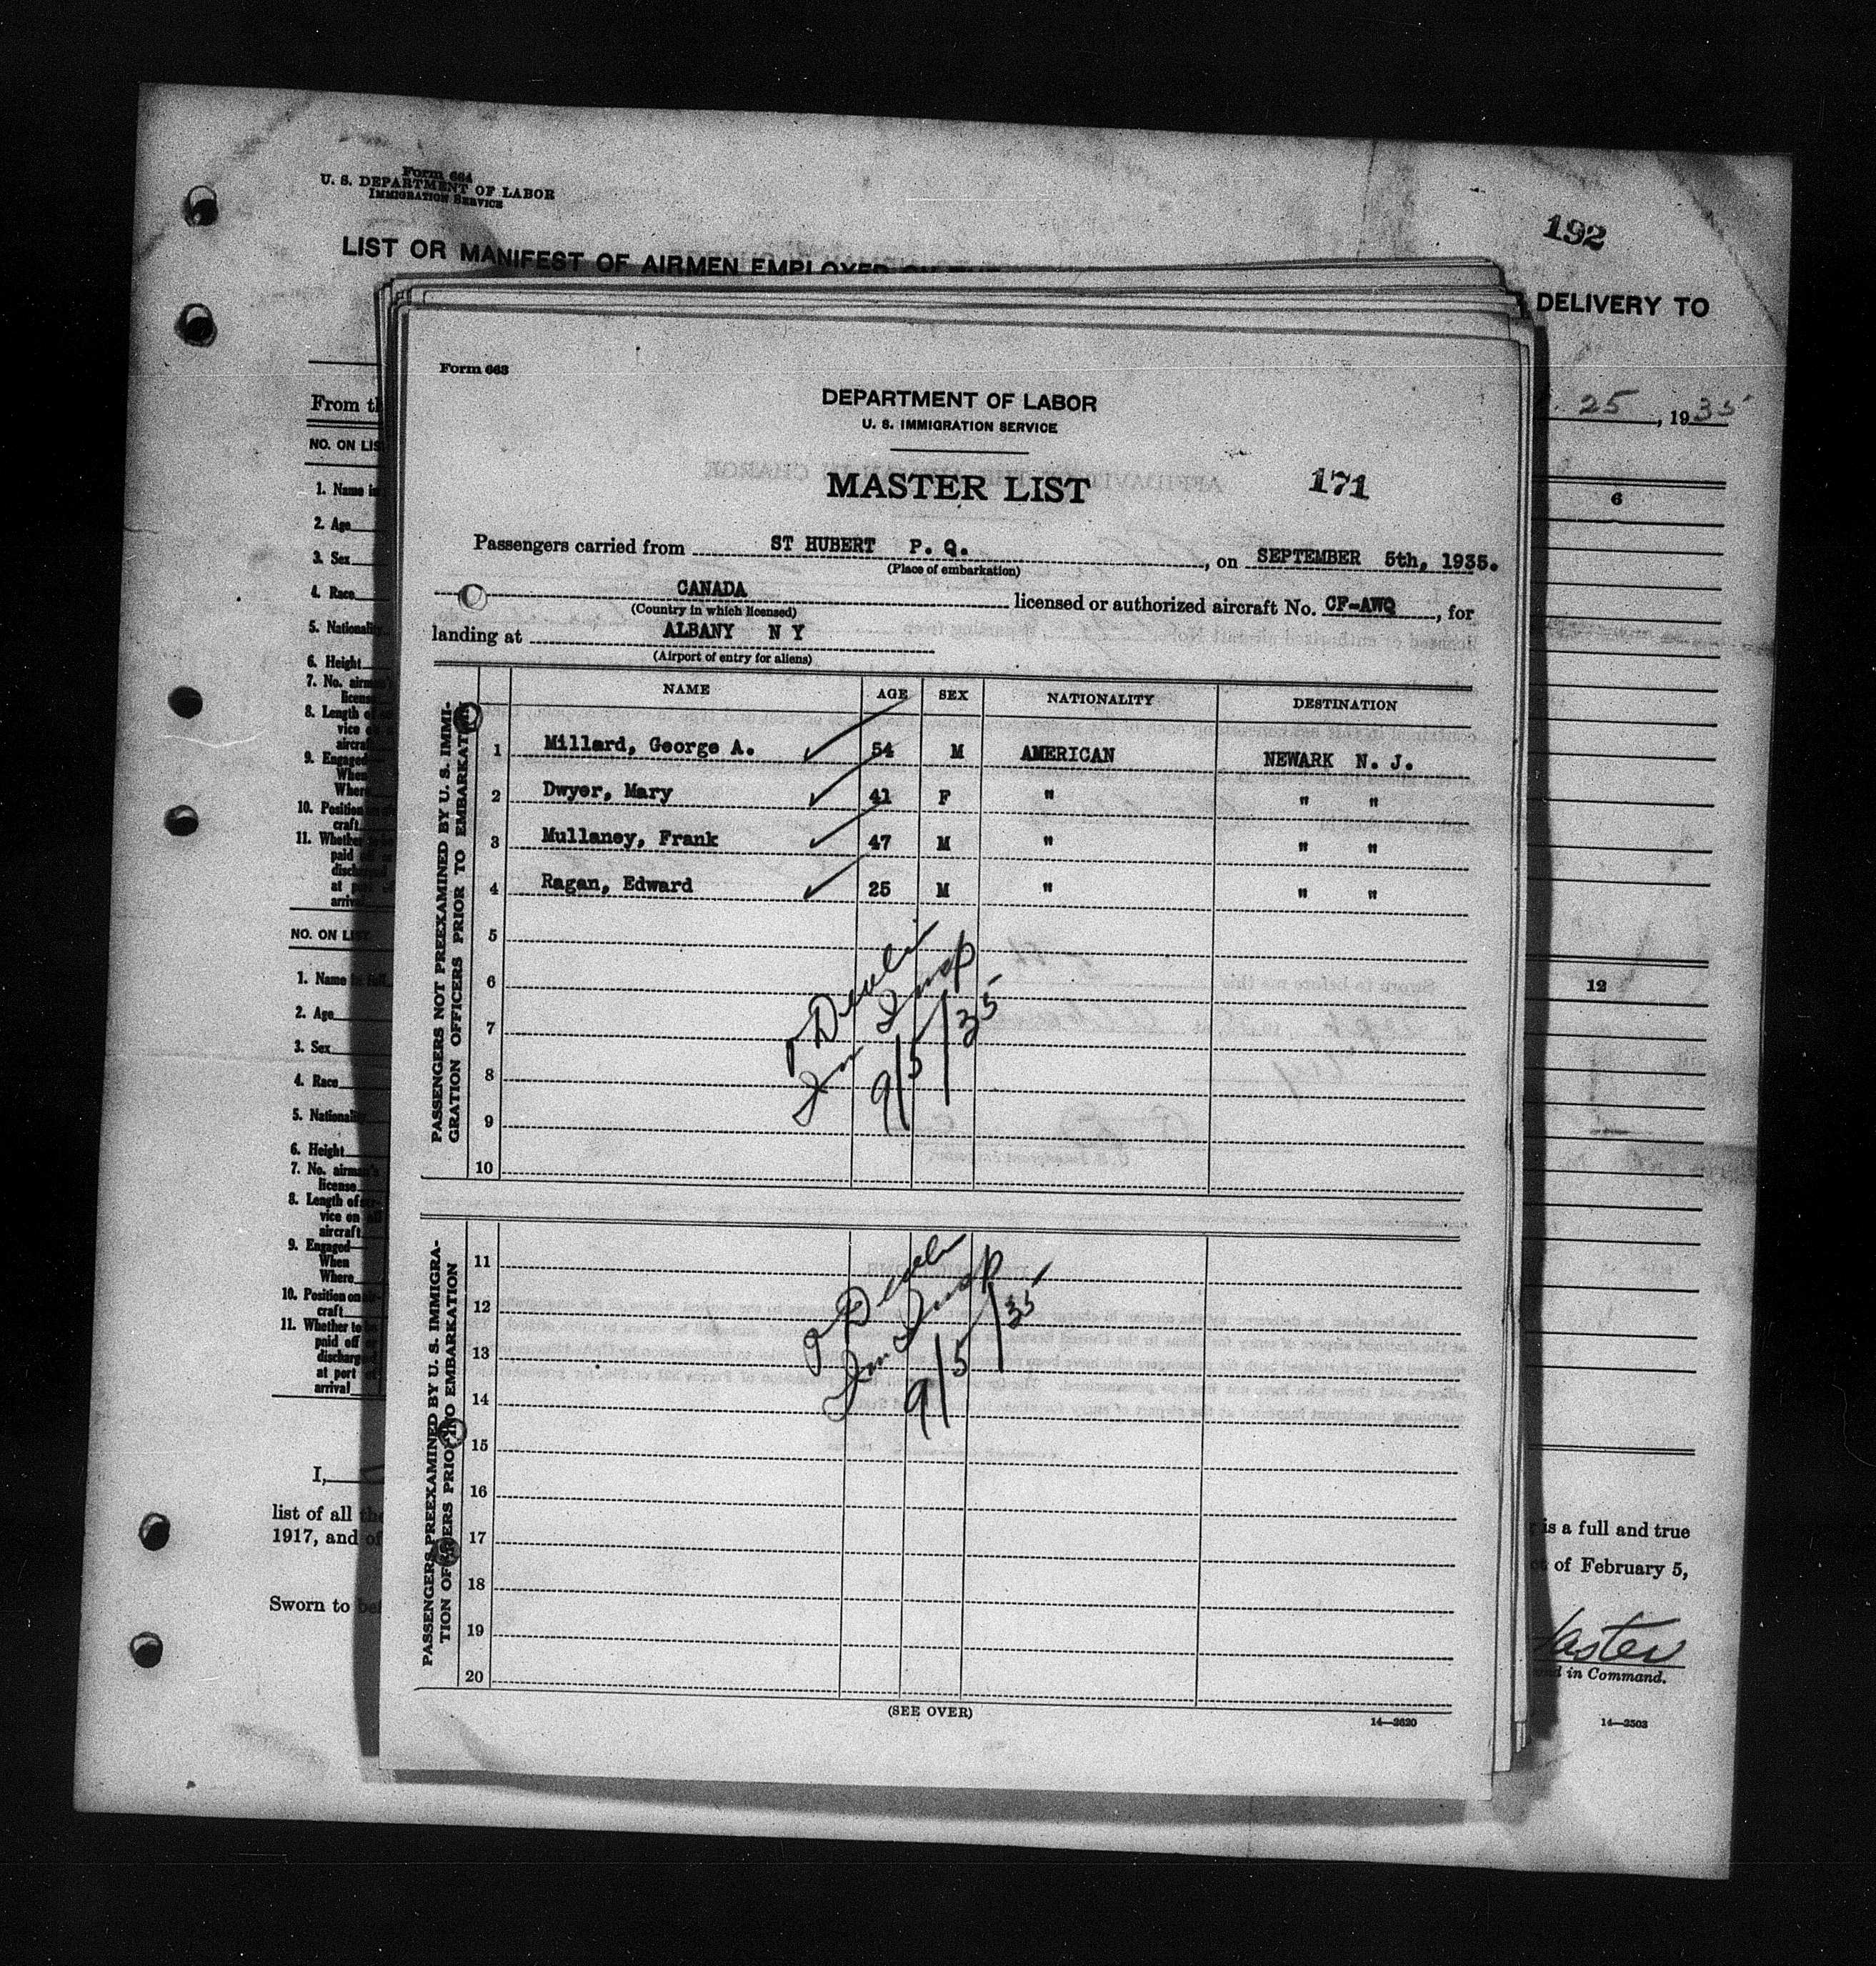 Form 664
U. S. DEPARTMENT OF LABOR
IMMIGRATION SERVICE
192
LIST OR MANIFEST OF AIRMEN EMPLOYED
DELIVERY TO
From
25, 1935
NO. ON LIS
6
1. Name in
2. Age
3. Sex
4. Race
5. Nationality
6. Height
7. No. airman's
license
8. Length of
vice on
aircraft
9. Engaged
When
Where
10. Position
craft
11. Whether
paid
disch
at
arriv
NO. ON LIST
12
1. Name in full
2. Age
3. Sex
4. Race
5. Nationality
6. Height
7. No. airman's
license
8. Length of
vice on
aircraft
9. Engaged—
When
Where
10. Position on air-
craft
11. Whether to be
paid off or
discharged
at port of
arrival
I,
list of all the
is a full and true
1917, and of
of February 5,
Sworn to bef
in Command.
14—2503
Form 663
DEPARTMENT OF LABOR
U. S. IMMIGRATION SERVICE
MASTER LIST
171
Passengers carried from ST HUBERT P. Q., on SEPTEMBER 5th, 1935.
(Place of embarkation)
CANADA licensed or authorized aircraft No. CF-AWQ, for
(Country in which licensed)
landing at ALBANY N Y
(Airport of entry for aliens)
NAME AGE SEX NATIONALITY DESTINATION
PASSENGERS NOT PREEXAMINED BY U. S. IMMI-
GRATION OFFICERS PRIOR TO EMBARKATION
1 Millard, George A. 54 M AMERICAN NEWARK N. J.
2 Dwyer, Mary 41 F " " "
3 Mullaney, Frank 47 M " " "
4 Ragan, Edward 25 M " " "
5
6
7
8
9
10
Imm Insp
9/5/35
PASSENGERS PREEXAMINED BY U. S. IMMIGRA-
TION OFFICERS PRIOR TO EMBARKATION
11
12
13
14
15
16
17
18
19
20
Imm Insp
9/5/35
(SEE OVER)
14—2620